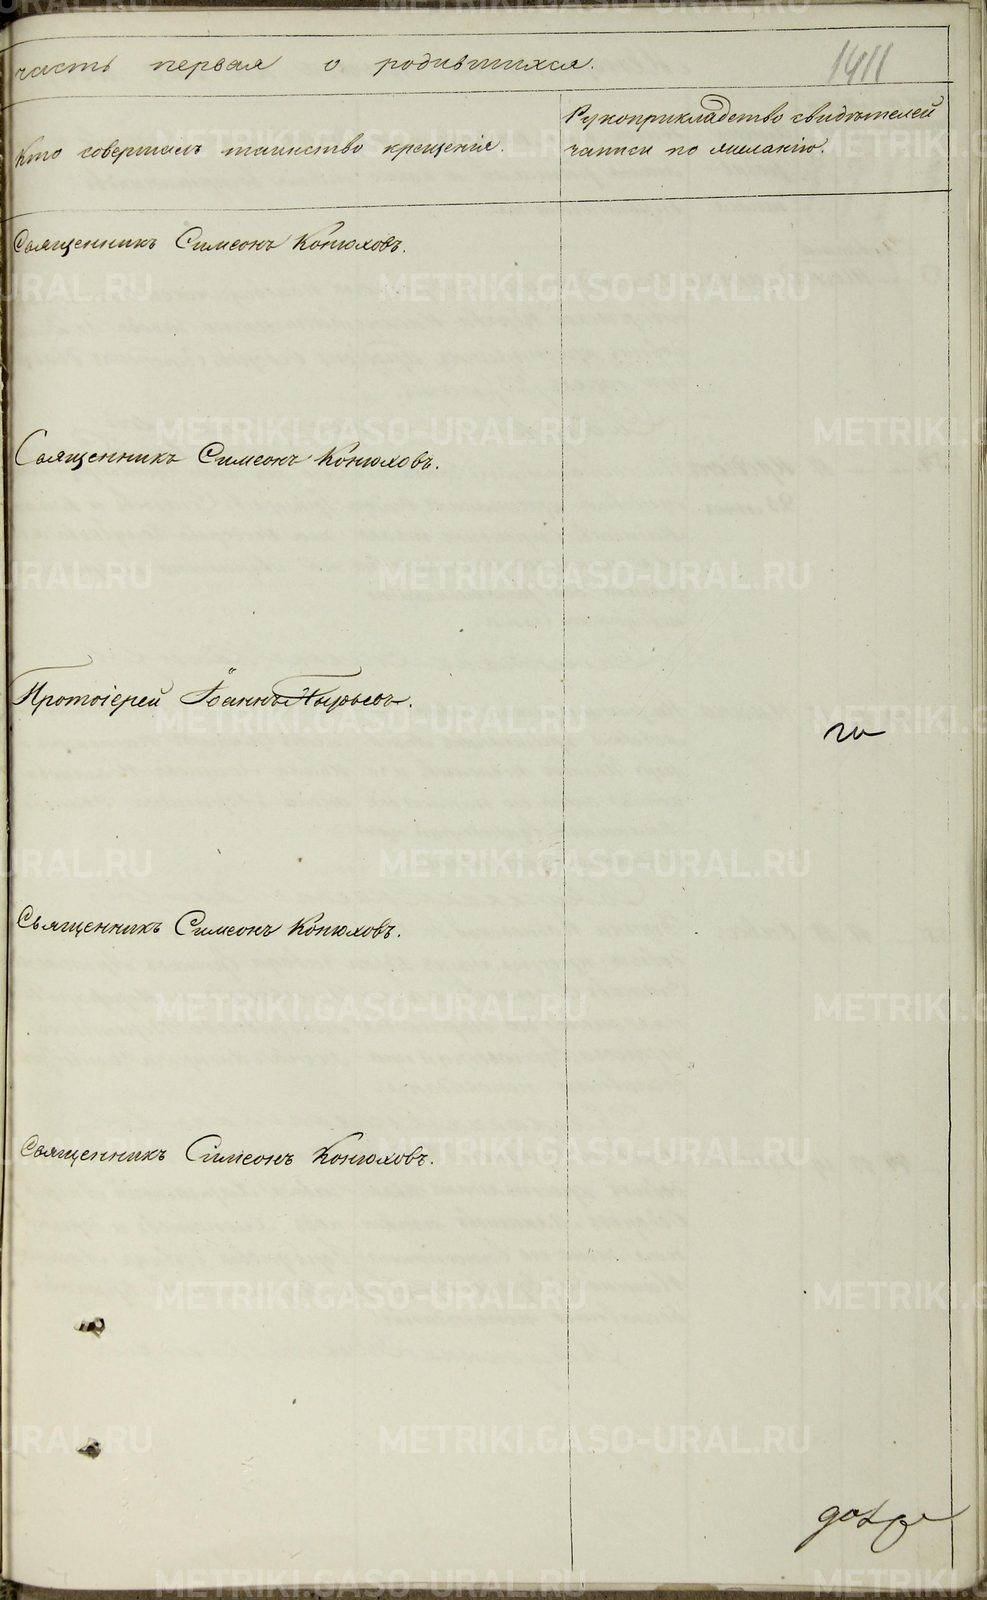 часть первая о родившихся.
1411
Кто совершалъ таинство крещенія.
Рукоприкладство свидѣтелей
записи по желанію.
Священникъ Симеонъ Конюховъ.
Священникъ Симеонъ Конюховъ.
Протоіерей Іоаннъ
Священникъ Симеонъ Конюховъ.
Священникъ Симеонъ Конюховъ.
METRIKI.GASO-URAL.RU